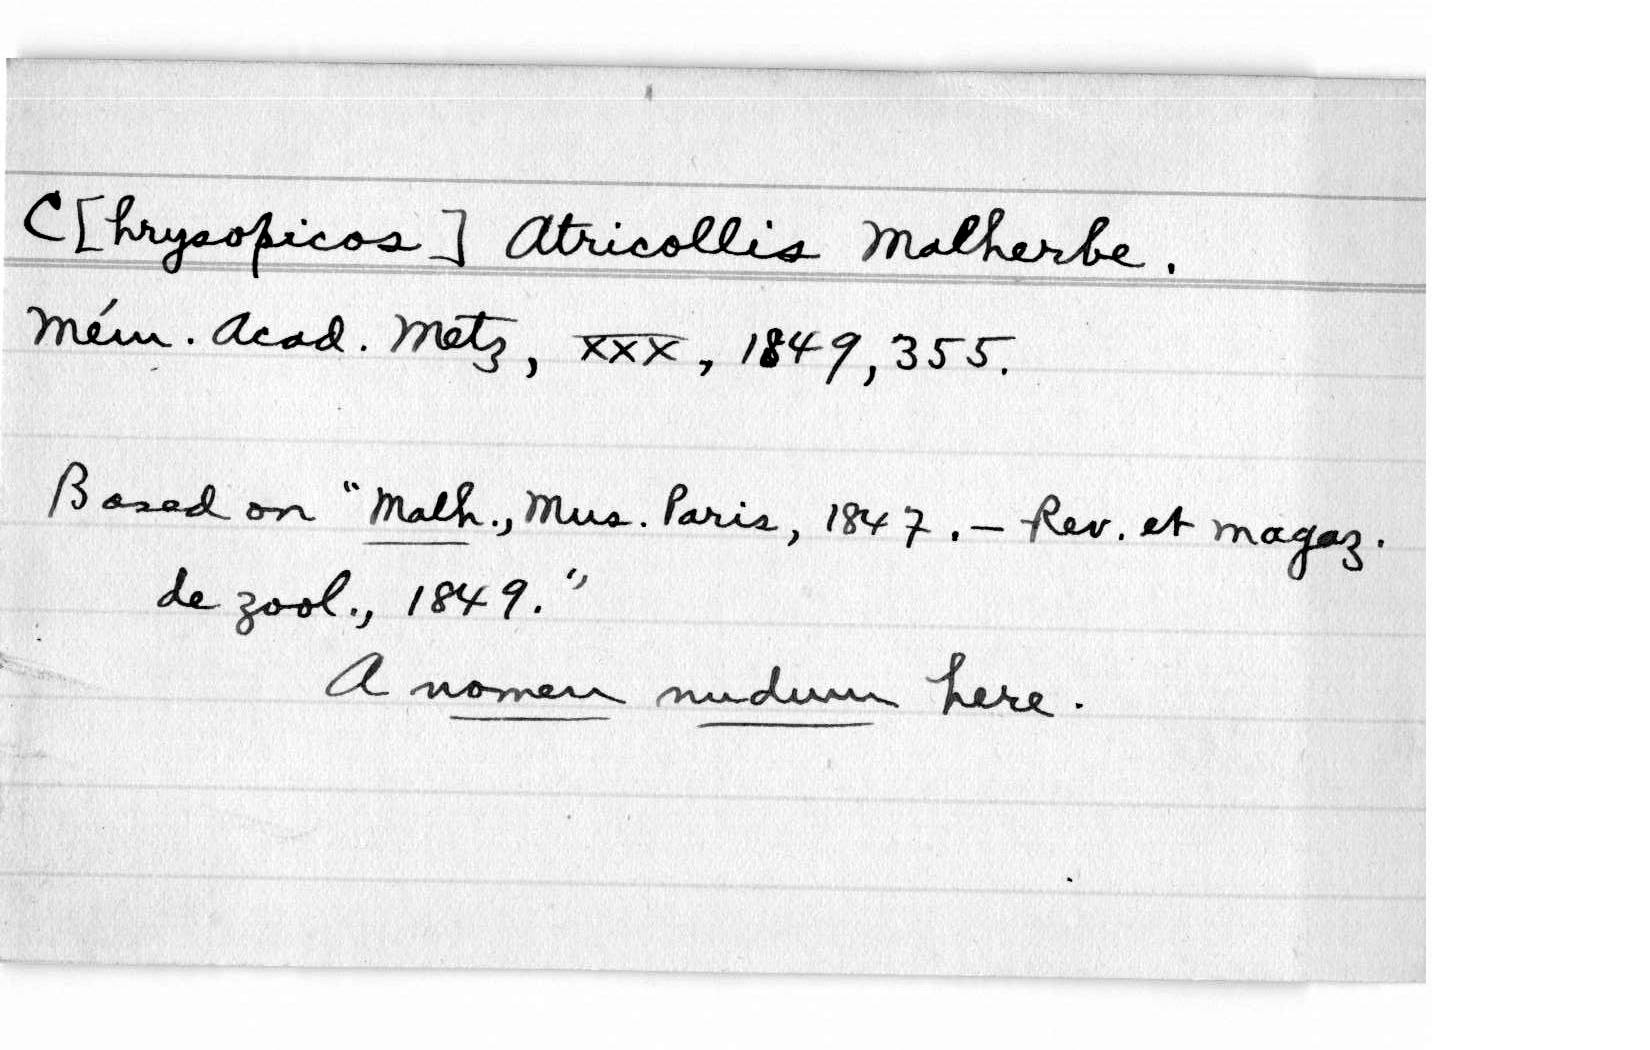 C[hrysopicos] Atricollis Malherbe.
Mém. Acad. Metz, XXX, 1849, 355.
Based on "Malh., Mus. Paris, 1847. – Rev. et magaz.
de zool., 1849."
A nomen nudum here.